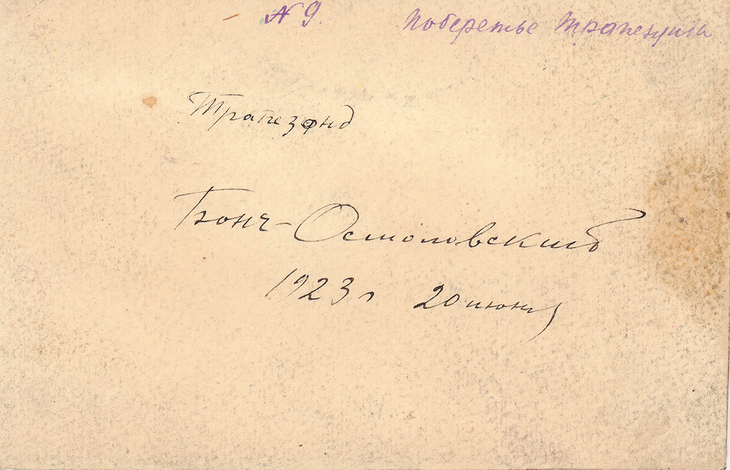 № 9. Побережье Трапезунда
Трапезонд
Бонч-Осмоловский
1923 г 20 июня